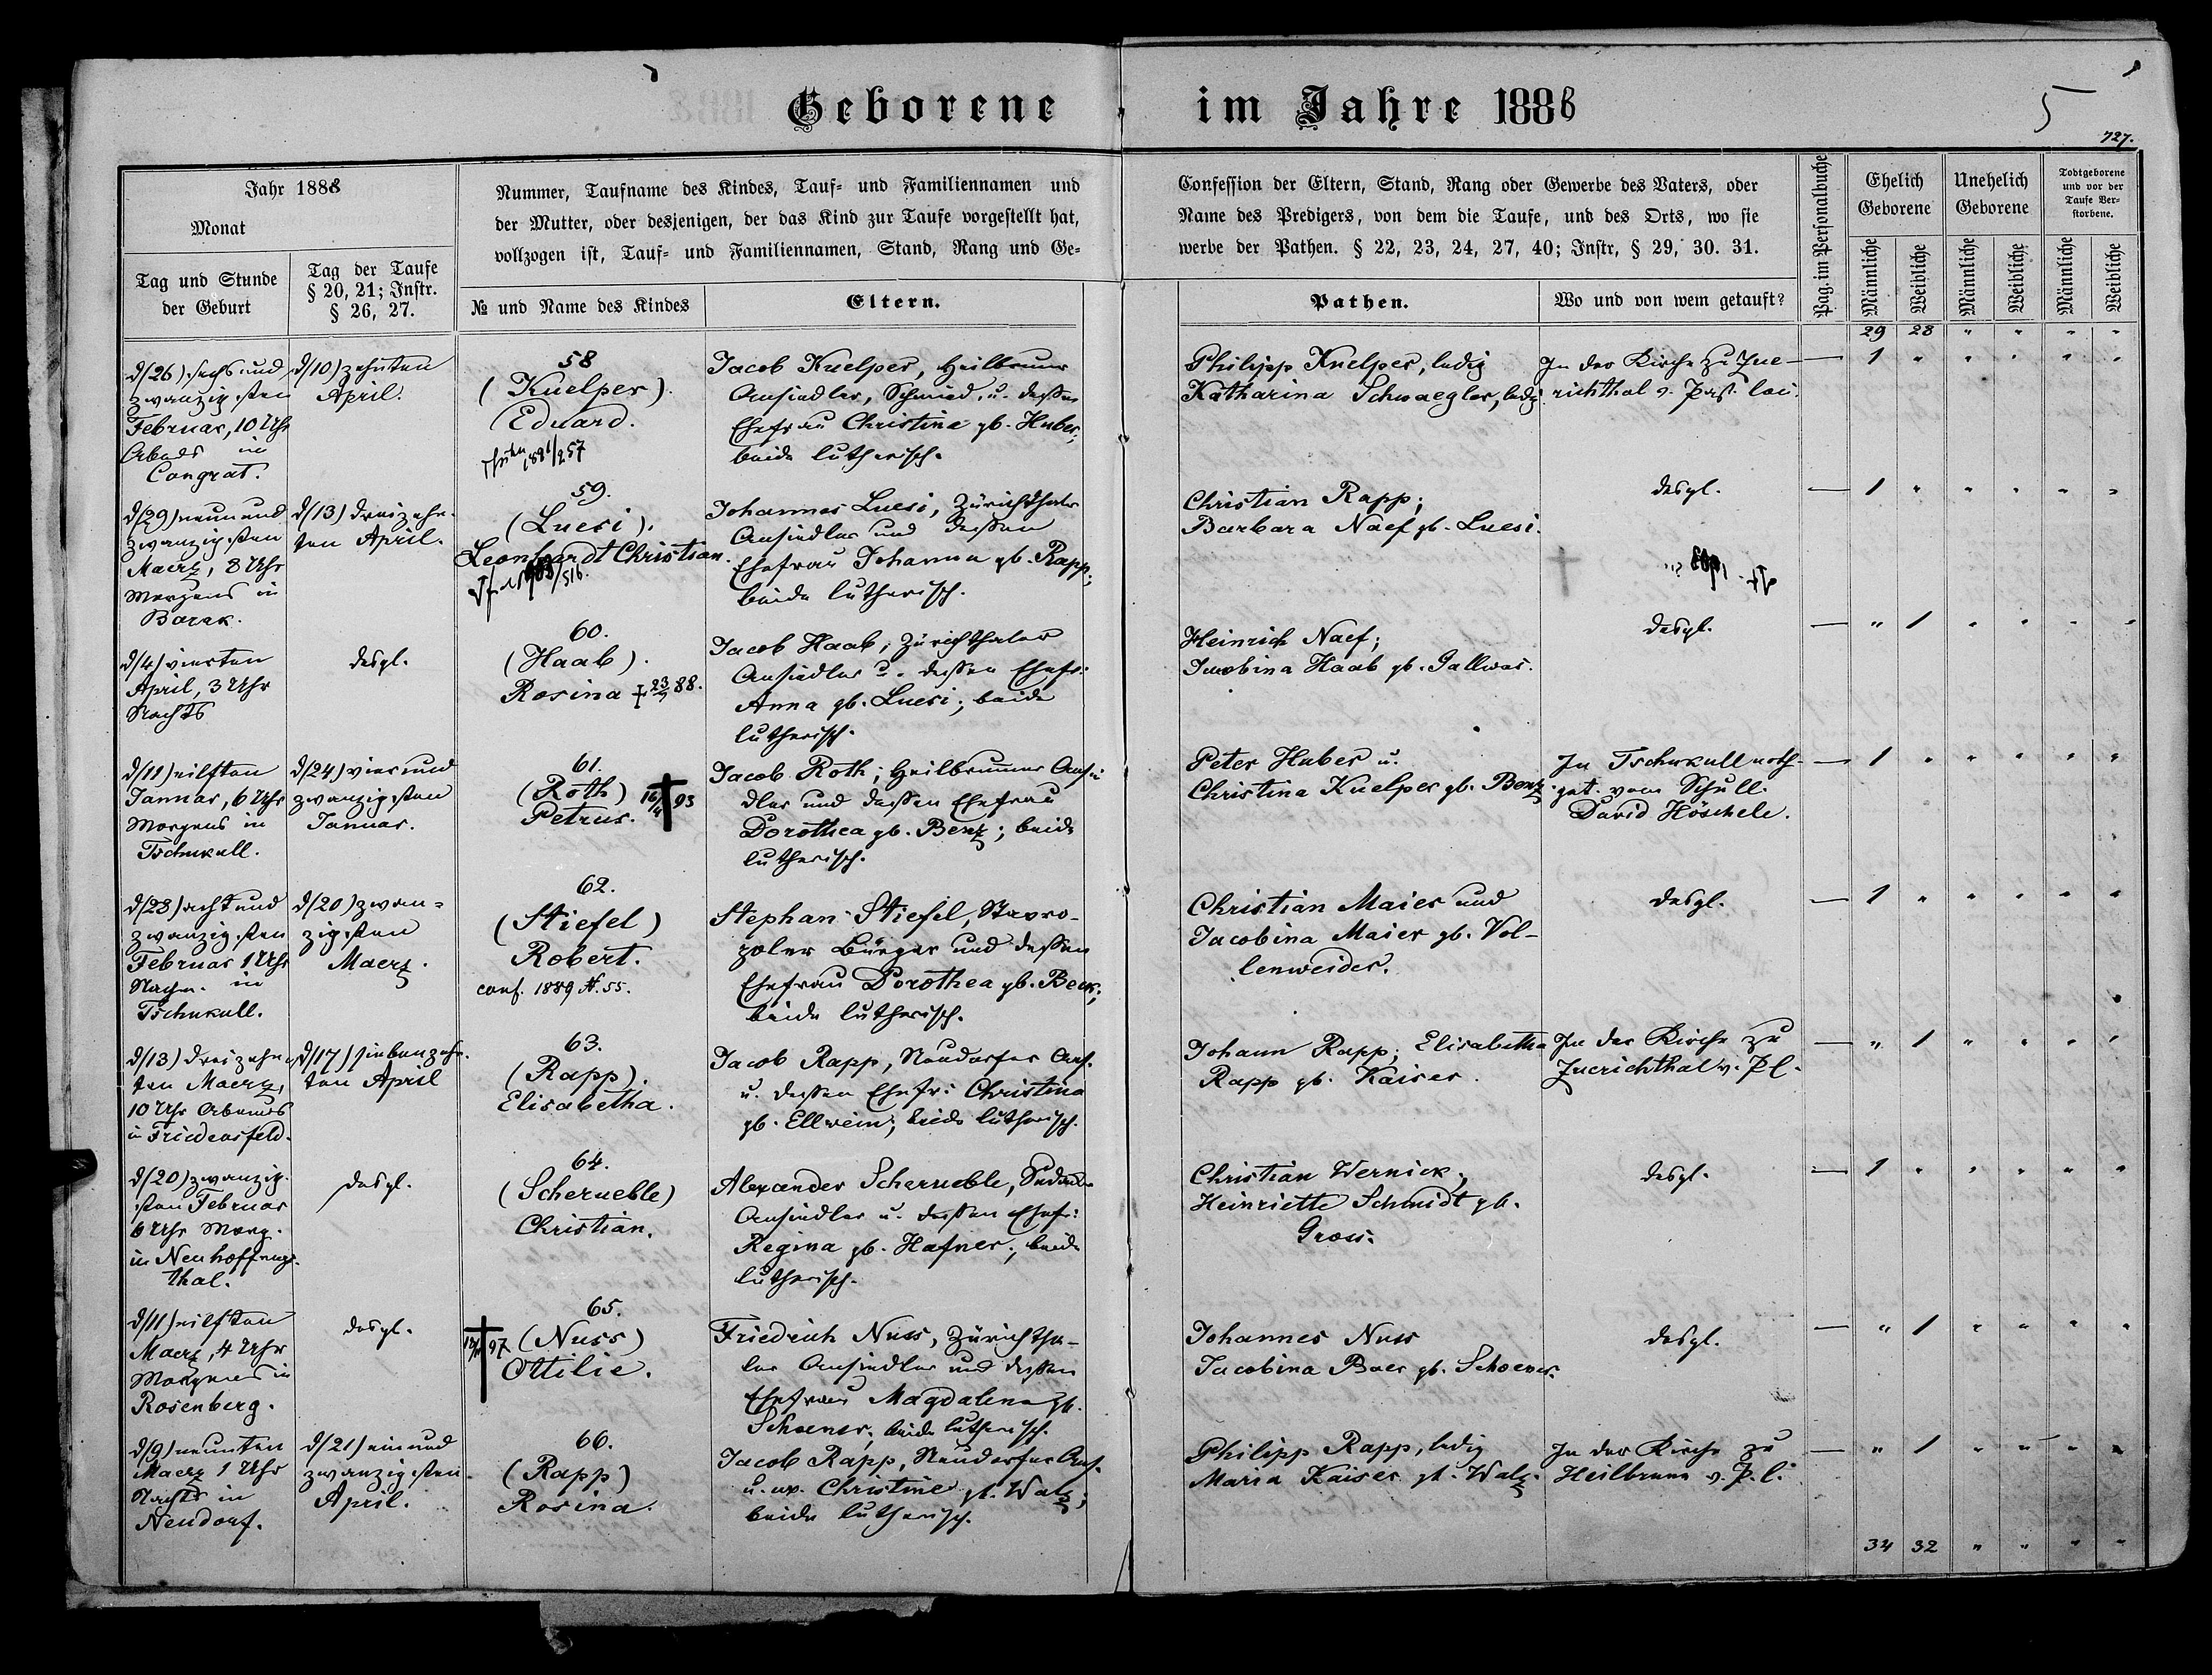 Geborene im Jahre 1888
5
727.
Jahr 1888
Monat
Tag und Stunde
der Geburt
Tag der Taufe
§ 20, 21; Instr.
§ 26, 27.
Nummer, Taufname des Kindes, Tauf= und Familiennamen und
der Mutter, oder desjenigen, der das Kind zur Taufe vorgestellt hat,
vollzogen ist, Tauf= und Familiennamen, Stand, Rang und Ge=
№ und Name des Kindes
Eltern.
Confession der Eltern, Stand, Rang oder Gewerbe des Vaters, oder
Name des Predigers, von dem die Taufe, und des Orts, wo sie
werbe der Pathen. § 22, 23, 24, 27, 40; Instr, § 29, 30. 31.
Pathen.
Wo und von wem getauft?
Pag. im Personalbuche
Ehelich
Geborene
Unehelich
Geborene
Todtgeborene
und vor der
Taufe Ver=
storbene.
Männliche
Weibliche
Männliche
Weibliche
Männliche
Weibliche
29 28 " " " "
d/(26) sechs und
zwanzigsten
Februar, 10 Uhr
Abends in
Congrat.
d/(10) zehnten
April.
58
(Kuelper).
Eduard.
Jacob Kuelper, Heilbrunn
Ansiedler, Schmied, u. dessen
Ehefrau Christina gb. Huber,
beide lutherisch.
Philipp Kuelper, ledig
Katharina Schwaegler, ledig
In der Kirche zu Zue-
richthal v. Past. loci.
— 1 " " " " "
d/(29) neun und
zwanzigsten
Maerz, 8 Uhr
Morgens in
Barak.
d/(13) dreizehn-
ten April.
59.
(Luesi).
Leonhardt Christian.
Johannes Luesi, Zürichthaler
Ansiedler und dessen
Ehefrau Johanna gb. Rapp;
beide lutherisch.
Christian Rapp;
Barbara Naef gb. Luesi.
desgl.
— 1 " " " " "
d/(4) vierten
April, 3 Uhr
Nachts
desgl.
60.
(Haab).
Rosina † 23/7 88.
Jacob Haab, Zürichthaler
Ansiedler u. dessen Ehefr:
Anna gb. Luesi; beide
lutherisch.
Heinrich Naef;
Jacobina Haab gb. Gallwas.
desgl.
— " 1 " " " "
d/(11) eilften
Januar, 6 Uhr
Morgens in
Tschukull.
d/(24) vier und
zwanzigsten
Januar.
61.
(Roth) 16/4 † 93
Petrus.
Jacob Roth; Heilbrunner Ansie
dler und dessen Ehefrau
Dorothea gb. Benz; beide
lutherisch.
Peter Huber u.
Christina Kuelper gb. Benz
In Tschukull noth-
get. vom Schull.
David Höschele.
— 1 " " " " "
d/(28) acht und
zwanzigsten
Februar 1 Uhr
Nachm. in
Tschukull.
d/(20) zwan=
zigsten
Maerz.
62.
(Stiefel)
Robert.
conf. 1889 N. 55.
Stephan Stiefel, Stavro-
poler Bürger und dessen
Ehefrau Dorothea gb. Beck;
beide lutherisch.
Christian Maier und
Jacobina Maier gb. Vol-
lenweider.
desgl.
— 1 " " " " "
d/(13) dreizehn
ten Maerz,
10 Uhr Abends
in Friedensfeld.
d/(17) siebenzehn
ten April
63.
(Rapp).
Elisabetha.
Jacob Rapp, Neudorfer Ans.
u. dessen Ehefr: Christina
gb. Ellwein; beide lutherisch.
Johann Rapp; Elisabetha
Rapp gb. Kaiser.
In der Kirche zu
Zuerichthal v. P.l.
— " 1 " " " "
d/(20) zwanzig-
sten Februar
6 Uhr Morg.
in Neuhoffnungs-
thal.
desgl.
64.
(Scherueble)
Christian.
Alexander Scherueble,
Ansiedler u. dessen Ehefr:
Regina gb. Hafner; beide
lutherisch.
Christian Wernick,
Heinriette Schmidt gb.
Gross.
desgl.
— 1 " " " " "
d/(11) eilften
Maerz, 4 Uhr
Morgens in
Rosenberg.
desgl.
65.
† 97 (Nuss)
Ottilie.
Friedrich Nuss, Zürichtha-
ler Ansiedler und dessen
Ehefrau Magdalena gb.
Schoener; beide lutherisch.
Johannes Nuss
Jacobina Baer gb. Schoener.
desgl.
— " 1 " " " "
d/(9) neunten
Maerz 1 Uhr
Nachts in
Neudorf.
d/(21) ein und
zwanzigsten
April.
66.
(Rapp)
Rosina.
Jacob Rapp, Neudorfer Ans.
u. ux. Christine gb. Walz;
beide lutherisch.
Philipp Rapp, ledig
Maria Kaiser gb. Walz.
In der Kirche zu
Heilbrunn v. P.l.
— " 1 " " " "
34 32 " " " "